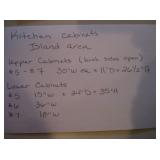 Kitchen cabinets
Island area
Upper Cabinets (both sides open)
#5 - #7 30"W ea x 11"D x 26½"H
Lower Cabinets
#5 15"W x 24"D x 35"H
#6 36"W
#7 18"W